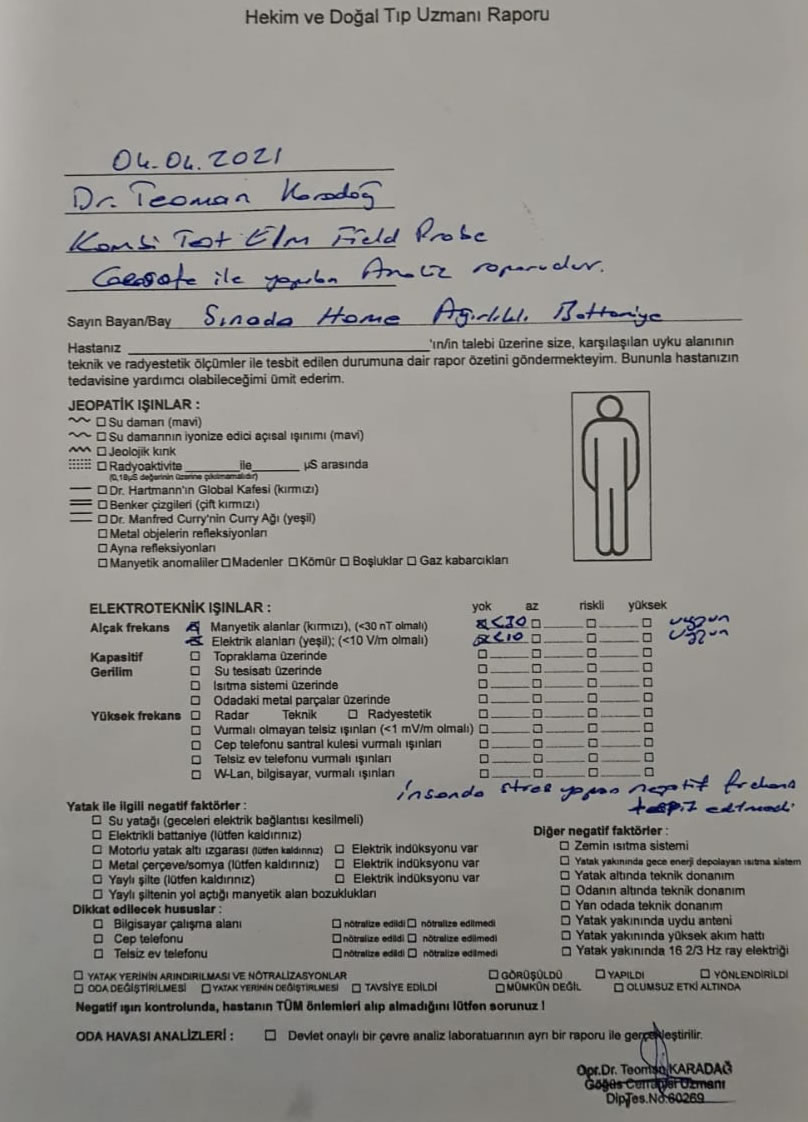 Hekim ve Doğal Tıp Uzmanı Raporu
04.04.2021
Dr. Teoman Karadağ
Kombi Test Elm Field Probe
ile yapılan Analiz raporudur.
Sayın Bayan/Bay Sınada Home Ağırlıklı Battaniye
Hastanız 'ın/in talebi üzerine size, karşılaşılan uyku alanının
teknik ve radyestetik ölçümler ile tesbit edilen durumuna dair rapor özetini göndermekteyim. Bununla hastanızın
tedavisine yardımcı olabileceğimi ümit ederim.
JEOPATİK IŞINLAR :
Su damarı (mavi)
Su damarının iyonize edici açısal ışınımı (mavi)
Jeolojik kırık
Radyoaktivite ile µS arasında
(0,18µS değerinin üzerine çıkılmamalıdır)
Dr. Hartmann'ın Global Kafesi (kırmızı)
Benker çizgileri (çift kırmızı)
Dr. Manfred Curry'nin Curry Ağı (yeşil)
Metal objelerin refleksiyonları
Ayna refleksiyonları
Manyetik anomaliler Madenler Kömür Boşluklar Gaz kabarcıkları
ELEKTROTEKNİK IŞINLAR : yok az riskli yüksek
Alçak frekans Manyetik alanlar (kırmızı), (<30 nT olmalı) <30 uygun
Elektrik alanları (yeşil); (<10 V/m olmalı) <10 uygun
Kapasitif Topraklama üzerinde
Gerilim Su tesisatı üzerinde
Isıtma sistemi üzerinde
Odadaki metal parçalar üzerinde
Yüksek frekans Radar Teknik Radyestetik
Vurmalı olmayan telsiz ışınları (<1 mV/m olmalı)
Cep telefonu santral kulesi vurmalı ışınları
Telsiz ev telefonu vurmalı ışınları
W-Lan, bilgisayar, vurmalı ışınları
insanda stres yapan negatif frekans
tespit edilmedi
Yatak ile ilgili negatif faktörler :
Su yatağı (geceleri elektrik bağlantısı kesilmeli)
Elektrikli battaniye (lütfen kaldırınız)
Motorlu yatak altı ızgarası (lütfen kaldırınız) Elektrik indüksiyonu var
Metal çerçeve/somya (lütfen kaldırınız) Elektrik indüksiyonu var
Yaylı şilte (lütfen kaldırınız) Elektrik indüksiyonu var
Yaylı şiltenin yol açtığı manyetik alan bozuklukları
Diğer negatif faktörler :
Zemin ısıtma sistemi
Yatak yakınında gece enerji depolayan ısıtma sistem
Yatak altında teknik donanım
Odanın altında teknik donanım
Yan odada teknik donanım
Yatak yakınında uydu anteni
Yatak yakınında yüksek akım hattı
Yatak yakınında 16 2/3 Hz ray elektriği
Dikkat edilecek hususlar :
Bilgisayar çalışma alanı nötralize edildi nötralize edilmedi
Cep telefonu nötralize edildi nötralize edilmedi
Telsiz ev telefonu nötralize edildi nötralize edilmedi
YATAK YERİNİN ARINDIRILMASI VE NÖTRALİZASYONLAR GÖRÜŞÜLDÜ YAPILDI YÖNLENDİRİLDİ
ODA DEĞİŞTİRİLMESİ YATAK YERİNİN DEĞİŞTİRİLMESİ TAVSİYE EDİLDİ MÜMKÜN DEĞİL OLUMSUZ ETKİ ALTINDA
Negatif ışın kontrolunda, hastanın TÜM önlemleri alıp almadığını lütfen sorunuz !
ODA HAVASI ANALİZLERİ : Devlet onaylı bir çevre analiz laboratuarının ayrı bir raporu ile gerçekleştirilir.
Opr.Dr. Teoman KARADAĞ
Göğüs Cerrahisi Uzmanı
Dip.Tes.No:60269